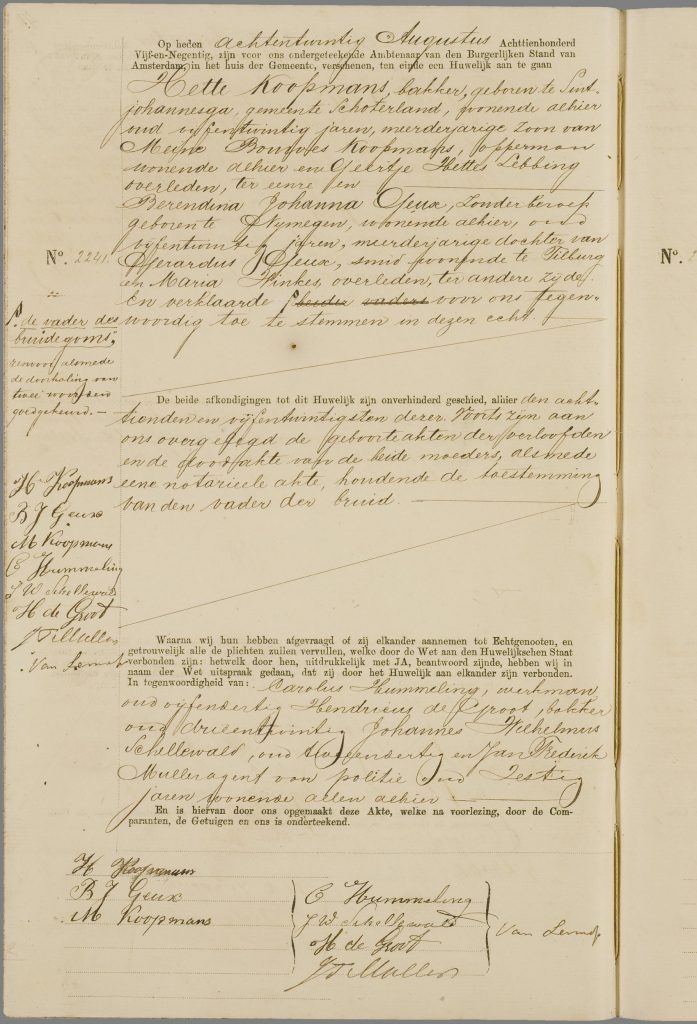 Op heden achtentwintig Augustus Achttienhonderd
Vijf-en-Negentig, zijn voor ons ondergeteekende Ambtenaar van den Burgerlijken Stand van
Amsterdam, in het huis der Gemeente, verschenen, ten einde een Huwelijk aan te gaan
Hette Koopmans, bakker, geboren te Sint
johannesga, gemeente Schoterland, wonende alhier
oud vijfentwintig jaren, meerderjarige zoon van
Meine Bouwes Koopmans, opperman
wonende alhier en Geertje Hettes Lebbing
overleden, ter eenre en
Berendina Johanna Geux, zonder beroep
geboren te Nijmegen, wonende alhier, oud
vijfentwintig jaren, meerderjarige dochter van
Gerardus Geux, smid wonende te Tilburg
en Maria Winkes, overleden, ter andere zijde.
En verklaarde beider vaders voor ons tegen-
woordig toe te stemmen in dezen echt.
No. 2241.
de vader des
bruidegoms,
renvooi alsmede
de doorhaling van
twee woorden
goedgekeurd. —
H Koopmans
B J Geux
M Koopmans
C Hummeling
J W Schellewald
H de Groot
J F Muller
Van Lennep
De beide afkondigingen tot dit Huwelijk zijn onverhinderd geschied, alhier den acht-
tienden en vijfentwintigsten dezer. Voorts zijn aan
ons overgelegd de geboorteakten der verloofden
en de doodakte van de beide moeders, alsmede
eene notarieele akte, houdende de toestemming
van den vader der bruid. —
Waarna wij hun hebben afgevraagd of zij elkander aannemen tot Echtgenooten, en
getrouwelijk alle de plichten zullen vervullen, welke door de Wet aan den Huwelijkschen Staat
verbonden zijn: hetwelk door hen, uitdrukkelijk met JA, beantwoord zijnde, hebben wij in
naam der Wet uitspraak gedaan, dat zij door het Huwelijk aan elkander zijn verbonden.
In tegenwoordigheid van: Carolus Hummeling, werkman
oud vijfendertig Hendricus de Groot, bakker
oud drieentwintig Johannes Wilhelmus
Schellewald, oud tweeendertig en Jan Frederik
Muller agent van politie oud zestig
jaren wonende allen alhier —
En is hiervan door ons opgemaakt deze Akte, welke na voorlezing, door de Com-
paranten, de Getuigen en ons is onderteekend.
H Koopmans
B J Geux
M Koopmans
C Hummeling
J W Schellewald
H de Groot
J F Muller
Van Lennep
No.